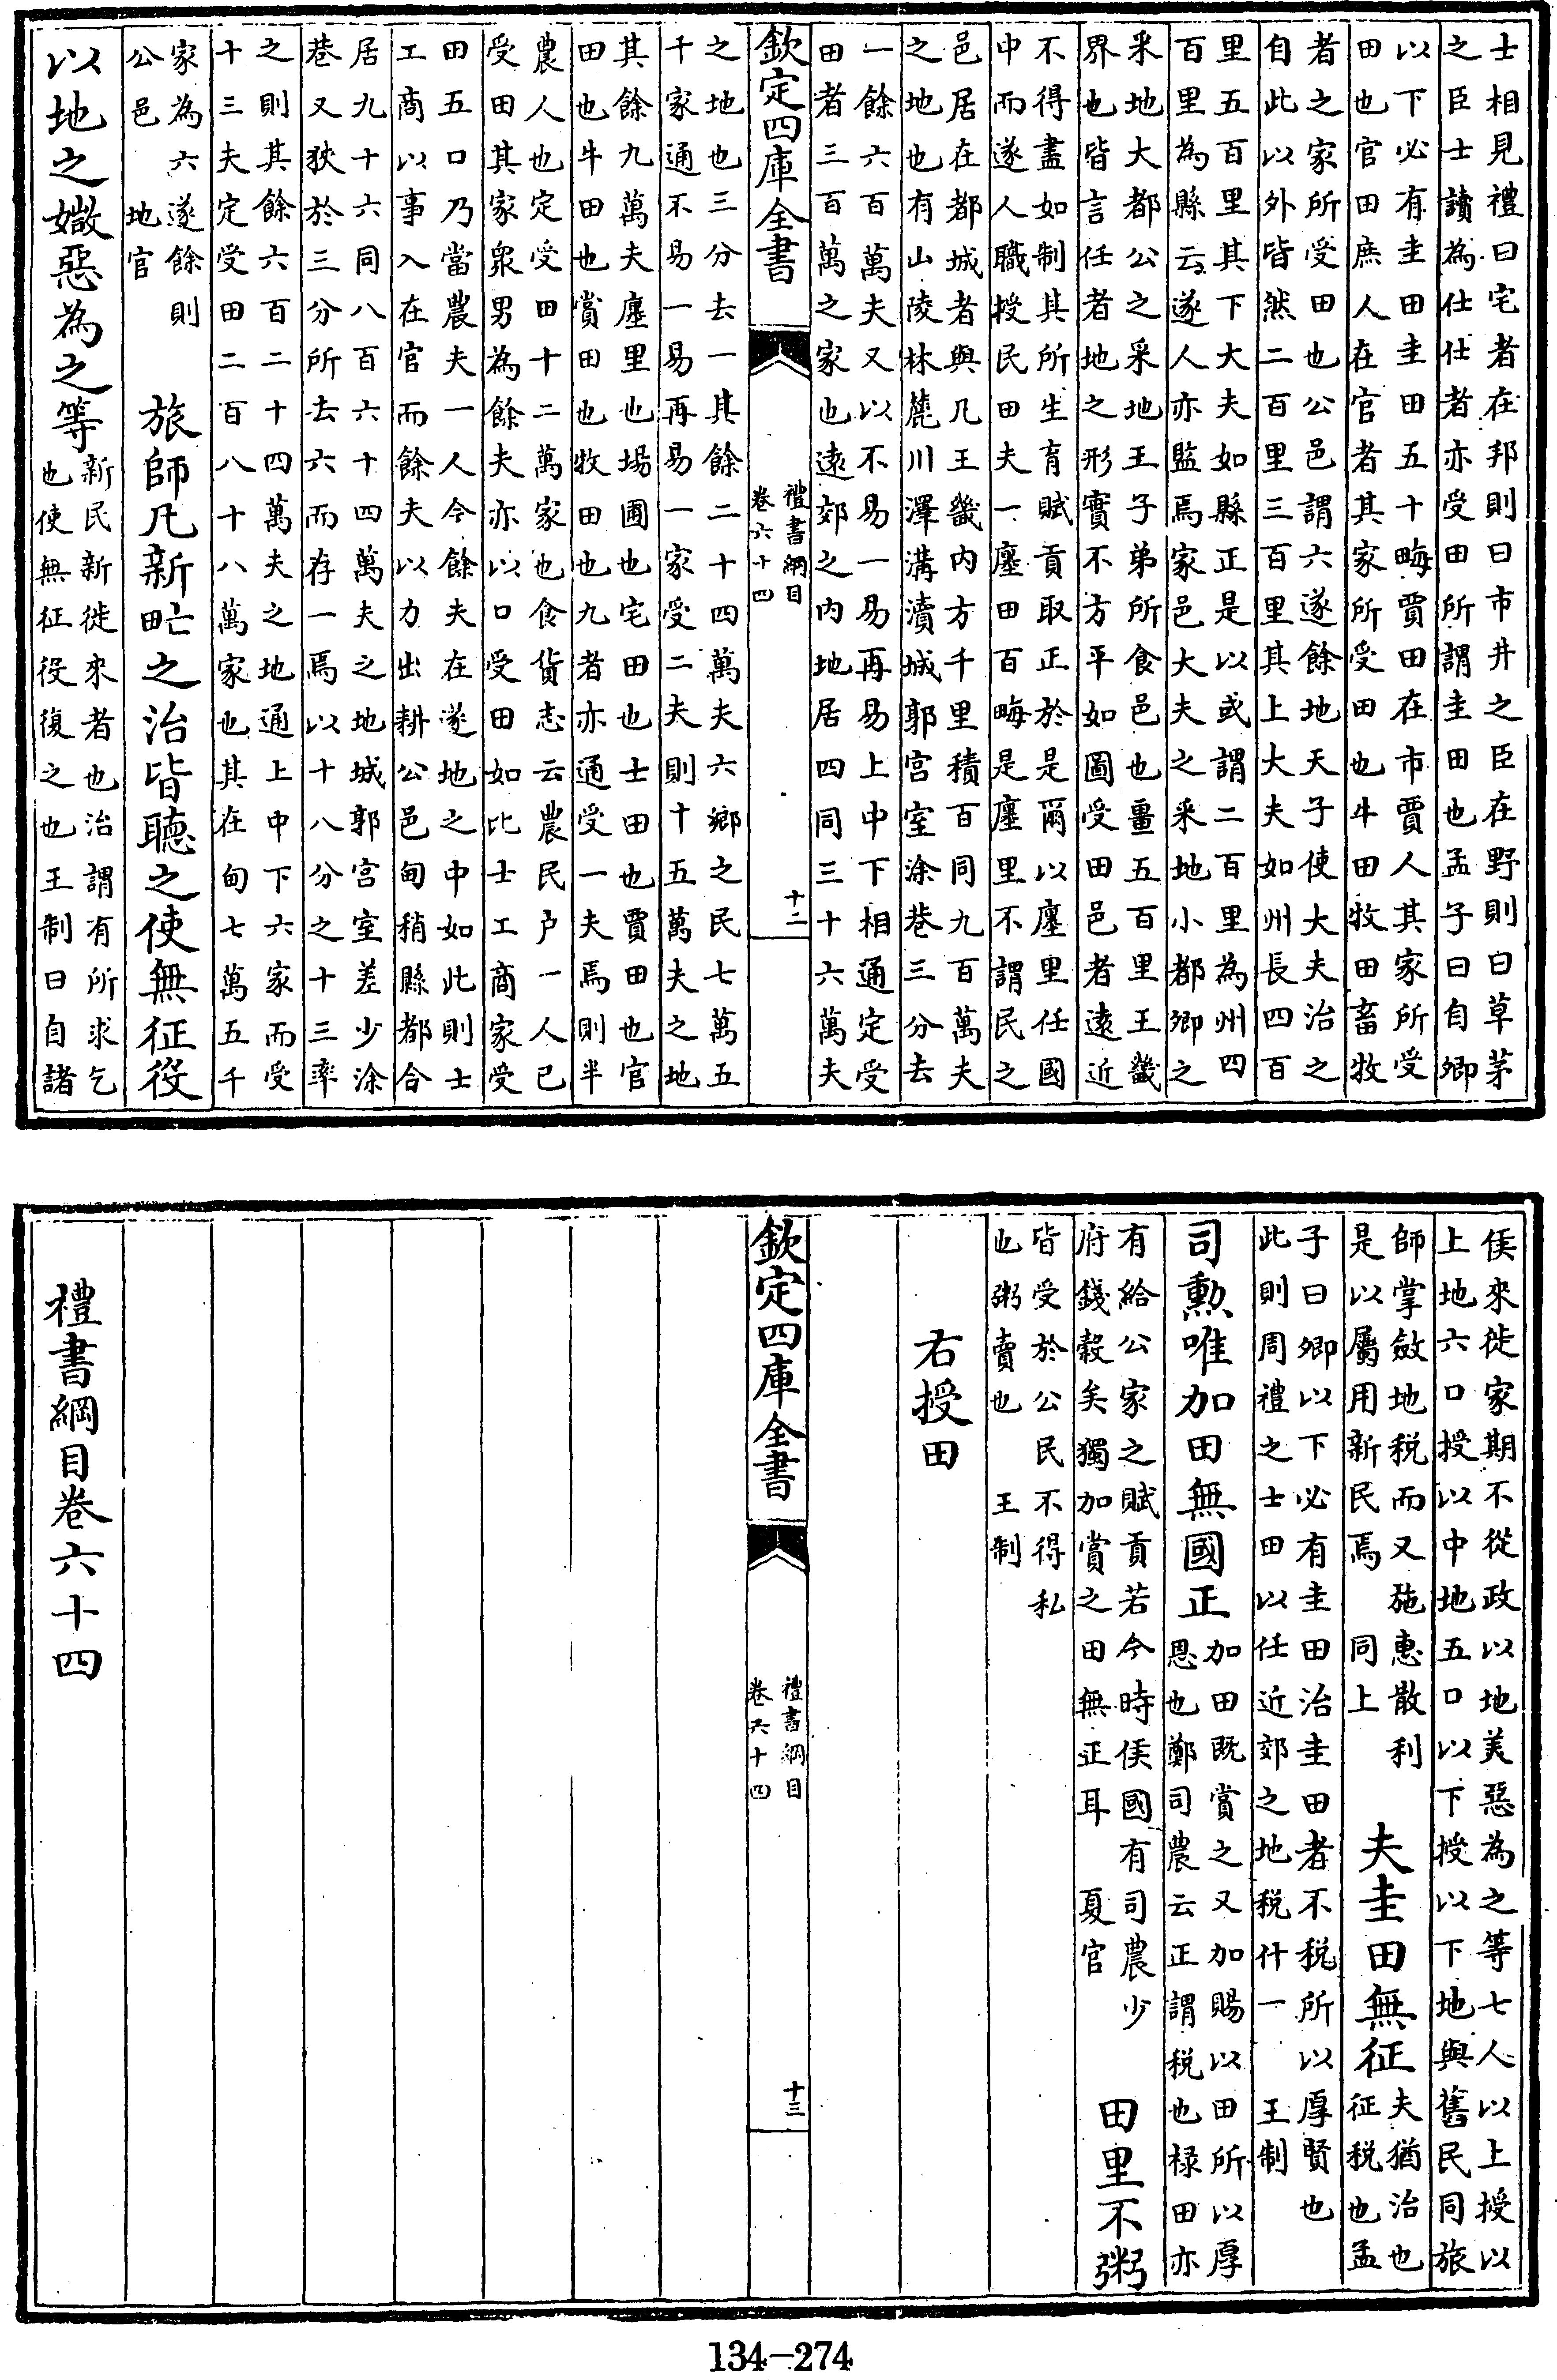 士相見禮曰宅者在邦則曰市井之臣在野則曰草茅
之臣士讀為仕仕者亦受田所謂圭田也孟子曰自卿
以下必有圭田圭田五十畮賈田在市賈人其家所受
田也官田庶人在官者其家所受田也牛田牧田畜牧
者之家所受田也公邑謂六遂餘地天子使大夫治之
自此以外皆然二百里三百里其上大夫如州長四百
里五百里其下大夫如縣正是以或謂二百里為州四
百里為縣云遂人亦監焉家邑大夫之采地小都卿之
采地大都公之采地王子弟所食邑也畺五百里王畿
界也皆言任者地之形實不方平如圖受田邑者遠近
不得盡如制其所生育賦貢取正於是爾以廛里任國
中而遂人職授民田夫一廛田百畮是廛里不謂民之
邑居在都城者與凡王畿內方千里積百同九百萬夫
之地也有山陵林麓川澤溝瀆城郭宮室涂巷三分去
一餘六百萬夫又以不易一易再易上中下相通定受
田者三百萬之家也遠郊之內地居四同三十六萬夫
欽定四庫全書
禮書綱目
卷六十四
十二
之地也三分去一其餘二十四萬夫六鄉之民七萬五
千家通不易一易再易一家受二夫則十五萬夫之地
其餘九萬夫廛里也場圃也宅田也士田也賈田也官
田也牛田也賞田也牧田也九者亦通受一夫焉則半
農人也定受田十二萬家也食貨志云農民户一人已
受田其家衆男為餘夫亦以口受田如比士工商家受
田五口乃當農夫一人今餘夫在遂地之中如此則士
工商以事入在官而餘夫以力出耕公邑甸稍縣都合
居九十六同八百六十四萬夫之地城郭宮室差少涂
巷又狹於三分所去六而存一焉以十八分之十三率
之則其餘六百二十四萬夫之地通上中下六家而受
十三夫定受田二百八十八萬家也其在甸七萬五千
家為六遂餘則
公邑　地官
旅師凡新甿之治皆聽之使無征役
以地之媺惡為之等
新民新徙來者也治謂有所求乞
也使無征役復之也王制曰自諸
侯來徙家期不從政以地美惡為之等七人以上授以
上地六口授以中地五口以下授以下地與舊民同旅
師掌斂地税而又施惠散利
是以屬用新民焉　同上
夫圭田無征
夫猶治也
征税也孟
子曰卿以下必有圭田治圭田者不税所以厚賢也
此則周禮之士田以任近郊之地税什一　王制
司勲唯加田無國正
加田既賞之又加賜以田所以厚
恩也鄭司農云正謂税也禄田亦
有給公家之賦貢若今時侯國有司農少
府錢穀矣獨加賞之田無正耳　夏官
田里不粥
皆受於公民不得私
也粥賣也　王制
右授田
欽定四庫全書
禮書綱目
卷六十四
十三
禮書綱目卷六十四
134—274